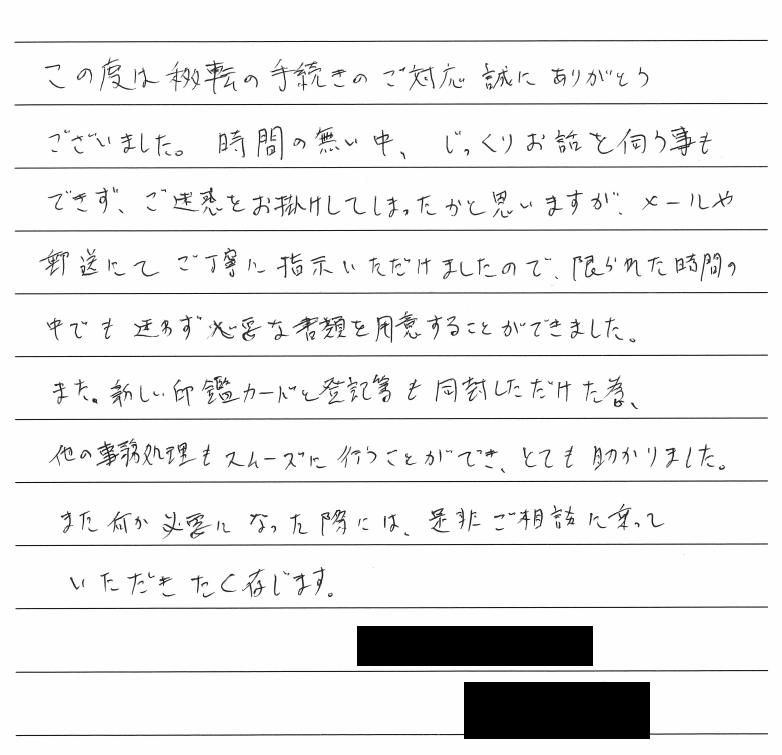 この度は移転の手続きのご対応 誠にありがとう
ございました。 時間の無い中、 じっくりお話を伺う事も
できず、ご迷惑をお掛けしてしまったかと思いますが、メールや
郵送にてご丁寧に指示いただけましたので、限られた時間の
中でも迷わず必要な書類を用意することができました。
また。新しい印鑑カードと登記簿も同封しただけた為、
他の事務処理もスムーズに行うことができ、とても助かりました。
また何か必要になった際には、是非ご相談に乗って
いただきたく存じます。